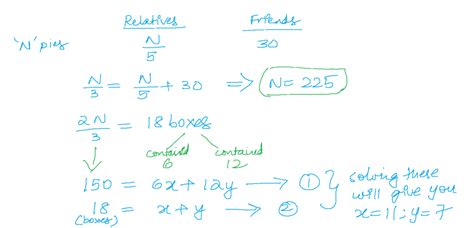 Relatives Friends
'N' pies N/5 30
N/3 = N/5 + 30 ⇒ N = 225
2N/3 = 18 boxes
contained 6 contained 12
150 = 6x + 12y → ①
18 (boxes) = x + y → ②
solving these
will give you
x=11; y=7